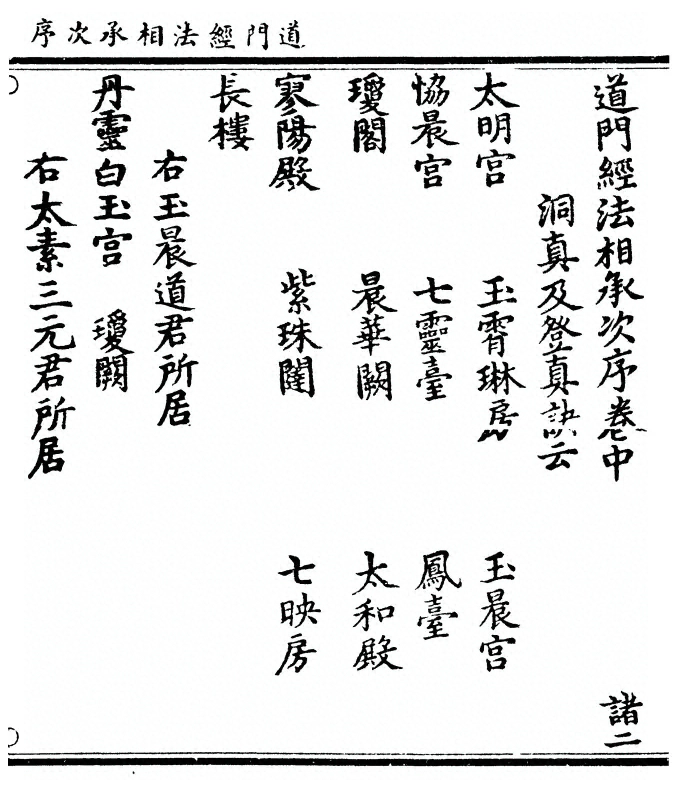 道門經法相承次序
道門經法相承次序卷中　諸二
洞真及登真訣云
太明宮　玉霄琳房　玉晨宮
恊晨宮　七靈臺　鳳臺
瓊閣　晨華闕　太和殿
寥陽殿　紫珠闈　七映房
長樓
右玉晨道君所居
丹靈白玉宮　瓊闕
右太素三元君所居